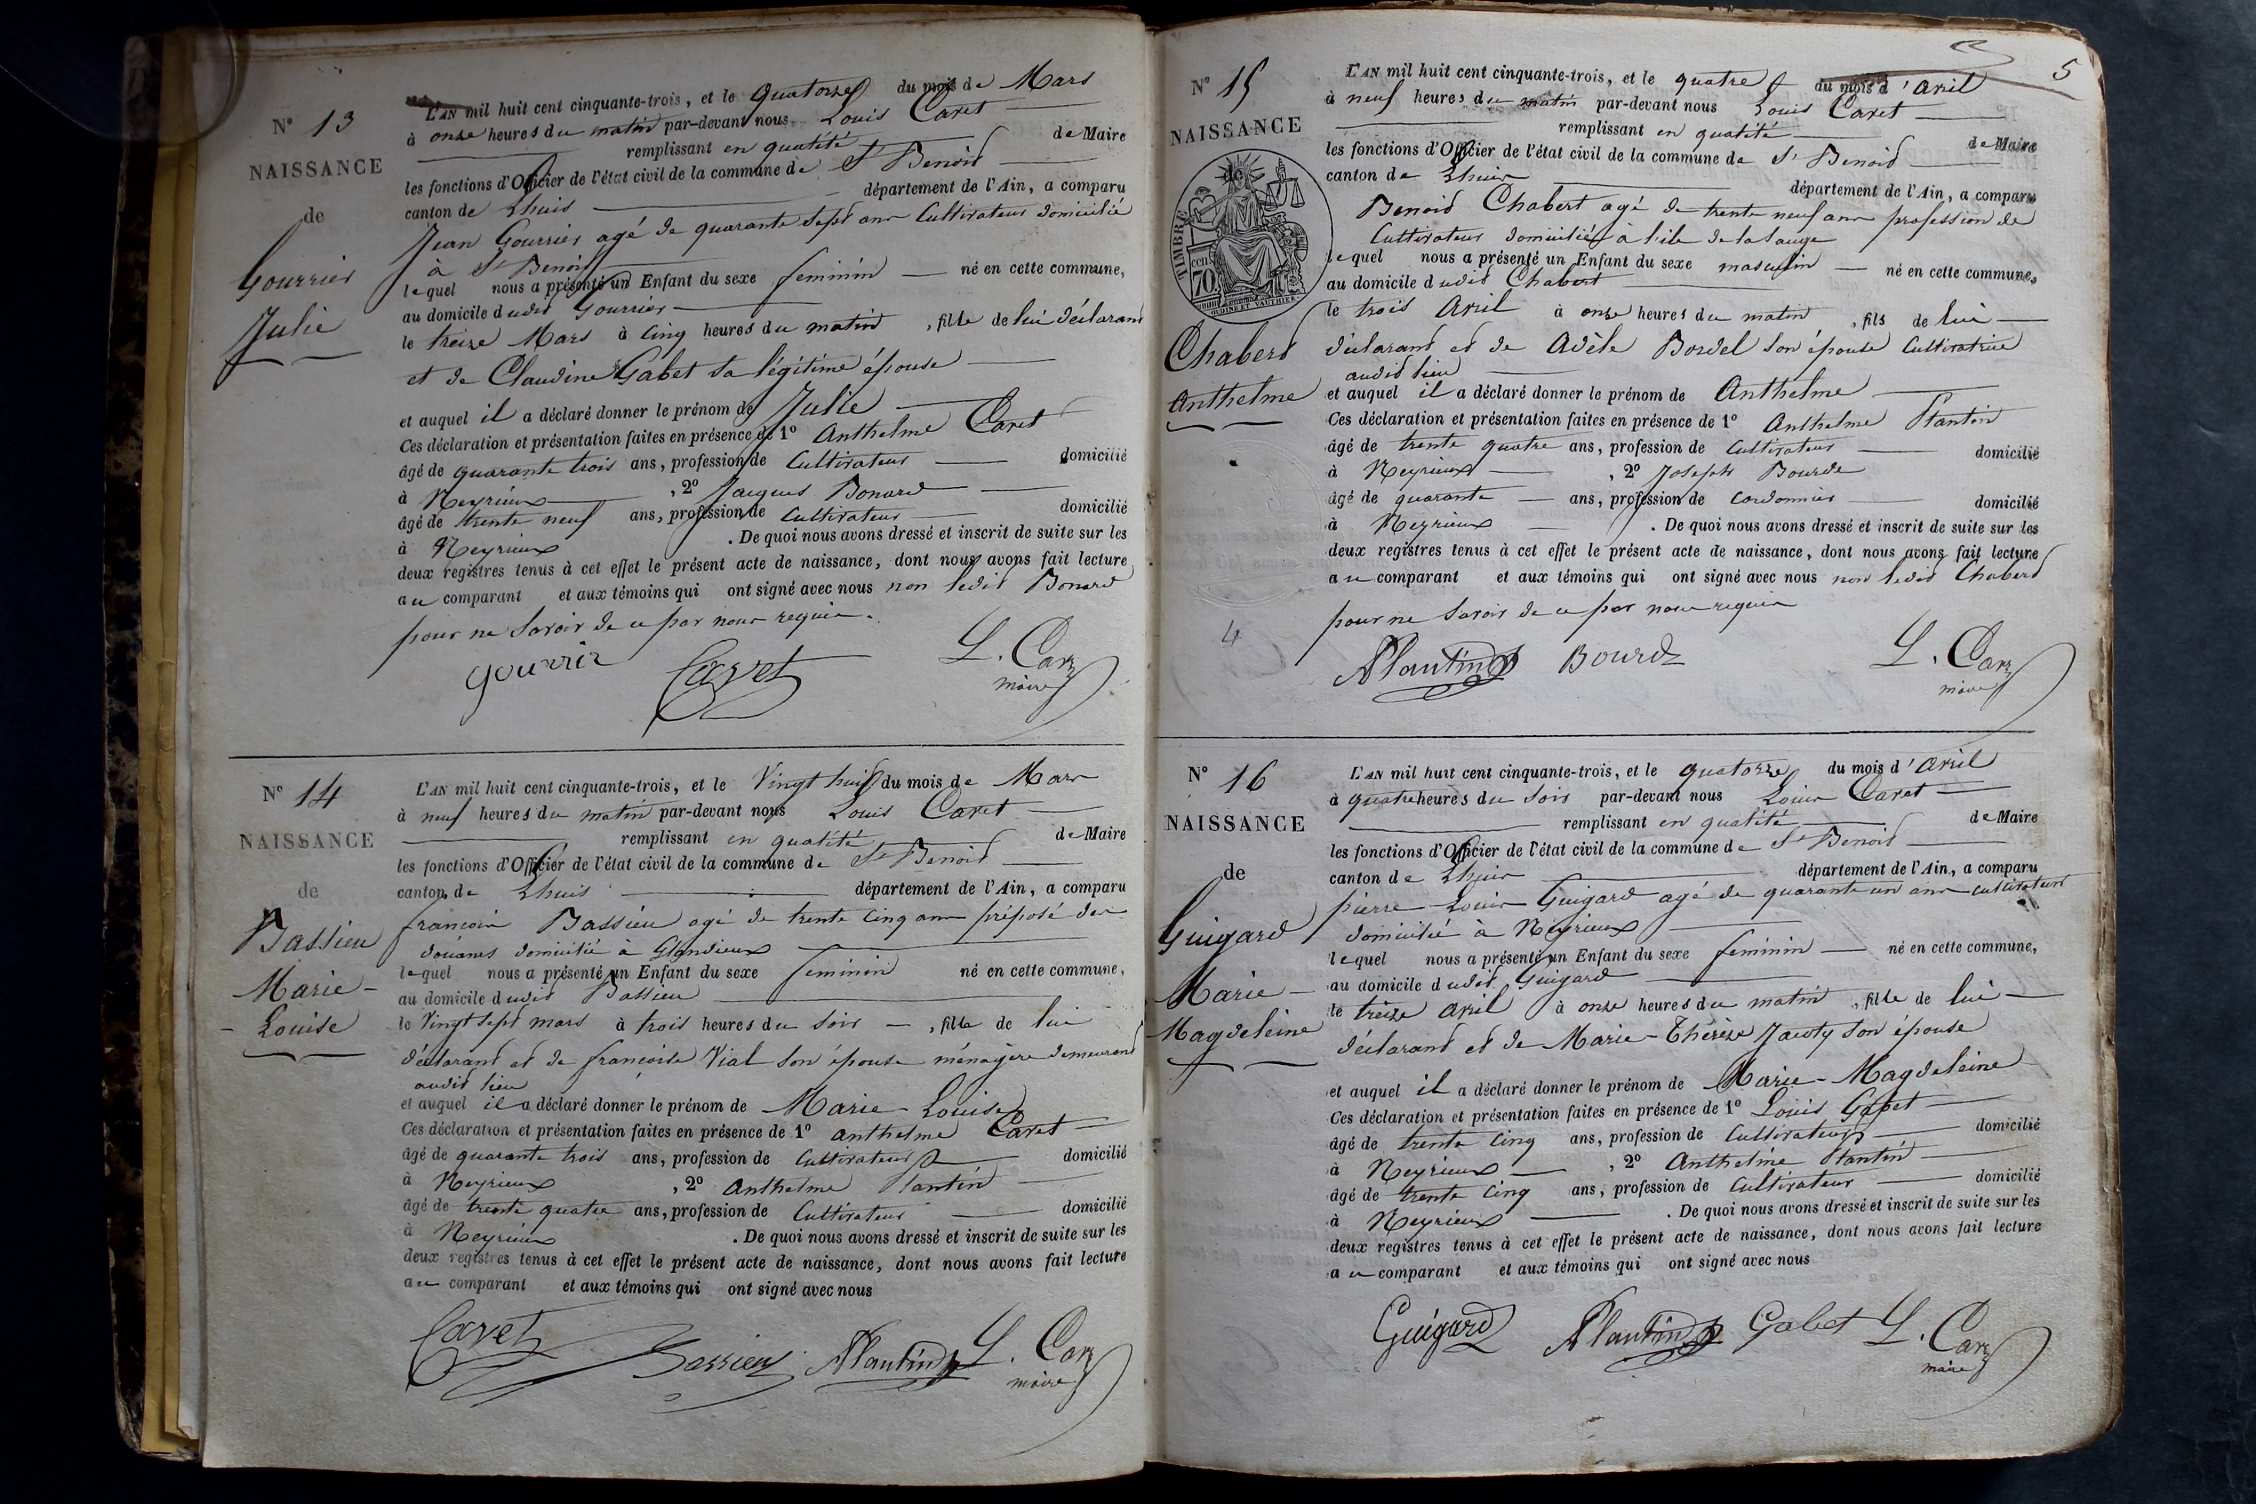 N° 13
NAISSANCE
de
Gourrier
Julie
L'AN mil huit cent cinquante-trois, et le quatorze du mois de Mars
à onze heures du matin par-devant nous Louis Caret
remplissant en qualité de Maire
les fonctions d'Officier de l'état civil de la commune de St Benoit
canton de Lhuis département de l'Ain, a comparu
Jean Gourrier agé de quarante sept ans Cultivateur domicilié
à St Benoit
lequel nous a présenté un Enfant du sexe feminin né en cette commune,
au domicile dudit Gourrier
le treize Mars à cinq heures du matin, fille de lui déclarant
et de Claudine Gabet sa légitime épouse
et auquel il a déclaré donner le prénom de Julie
Ces déclaration et présentation faites en présence de 1° Anthelme Caret
âgé de quarante trois ans, profession de Cultivateur domicilié
à Neyrieux, 2° Jacques Bonard
âgé de trente neuf ans, profession de Cultivateur domicilié
à Neyrieux. De quoi nous avons dressé et inscrit de suite sur les
deux registres tenus à cet effet le présent acte de naissance, dont nous avons fait lecture
au comparant et aux témoins qui ont signé avec nous non ledit Bonard
pour ne savoir de ce par nous requis.
gourrir Carret L. Caret
maire
N° 14
NAISSANCE
de
Bassieu
Marie-
-Louise
L'AN mil huit cent cinquante-trois, et le Vingt huit du mois de Mars
à neuf heures du matin par-devant nous Louis Caret
remplissant en qualité de Maire
les fonctions d'Officier de l'état civil de la commune de St Benoit
canton de Lhuis département de l'Ain, a comparu
francois Bassieu agé de trente cinq ans préposé des
douanes domicilié à Glandieux
lequel nous a présenté un Enfant du sexe feminin né en cette commune,
au domicile dudit Bassieu
le Vingt sept mars à trois heures du soir, fille de lui
déclarant et de francoise Vial son épouse ménagère demeurant
audit lieu
et auquel il a déclaré donner le prénom de Marie-Louise
Ces déclaration et présentation faites en présence de 1° anthelme Caret
âgé de quarante trois ans, profession de Cultivateur domicilié
à Neyrieux, 2° Anthelme Plantin
âgé de trente quatre ans, profession de Cultivateur domicilié
à Neyrieux. De quoi nous avons dressé et inscrit de suite sur les
deux registres tenus à cet effet le présent acte de naissance, dont nous avons fait lecture
au comparant et aux témoins qui ont signé avec nous
Carret Bassieu APlantin L. Caret
maire
5
N° 15
NAISSANCE
de
TIMBRE
70
OUDINE ET VAUTHIER
Chabert
Anthelme
4
L'AN mil huit cent cinquante-trois, et le quatre du mois d'avril
à neuf heures du matin par-devant nous Louis Caret
remplissant en qualité de Maire
les fonctions d'Officier de l'état civil de la commune de St Benoit
canton de Lhuis département de l'Ain, a comparu
Benoit Chabert agé de trente neuf ans profession de
Cultivateur domicilié à l'ile de la sauge
lequel nous a présenté un Enfant du sexe masculin né en cette commune,
au domicile dudit Chabert
le trois avril à onze heures du matin, fils de lui
déclarant et de Adèle Bordel son épouse Cultivatrice
audit lieu
et auquel il a déclaré donner le prénom de Anthelme
Ces déclaration et présentation faites en présence de 1° Anthelme Plantin
âgé de trente quatre ans, profession de Cultivateur domicilié
à Neyrieux, 2° Joseph Bourde
âgé de quarante ans, profession de cordonnier domicilié
à Neyrieux. De quoi nous avons dressé et inscrit de suite sur les
deux registres tenus à cet effet le présent acte de naissance, dont nous avons fait lecture
au comparant et aux témoins qui ont signé avec nous non ledit Chabert
pour ne savoir de ce par nous requis
APlantin Bourde L. Caret
maire
N° 16
NAISSANCE
de
Guigard
Marie-
Magdeleine
L'AN mil huit cent cinquante-trois, et le quatorze du mois d'avril
à quatre heures du soir par-devant nous Louis Caret
remplissant en qualité de Maire
les fonctions d'Officier de l'état civil de la commune de St Benoit
canton de Lhuis département de l'Ain, a comparu
pierre-Louis Guigard agé de quarante un ans cultivateur
domicilié à Neyrieux
lequel nous a présenté un Enfant du sexe feminin né en cette commune,
au domicile dudit Guigard
le treize avril à onze heures du matin, fille de lui
déclarant et de Marie-Thérèse Jacoty son épouse
et auquel il a déclaré donner le prénom de Marie-Magdeleine
Ces déclaration et présentation faites en présence de 1° Louis Gabet
âgé de trente cinq ans, profession de Cultivateur domicilié
à Neyrieux, 2° Anthelme Plantin
âgé de trente cinq ans, profession de Cultivateur domicilié
à Neyrieux. De quoi nous avons dressé et inscrit de suite sur les
deux registres tenus à cet effet le présent acte de naissance, dont nous avons fait lecture
au comparant et aux témoins qui ont signé avec nous
Guigard APlantin Gabet L. Caret
maire